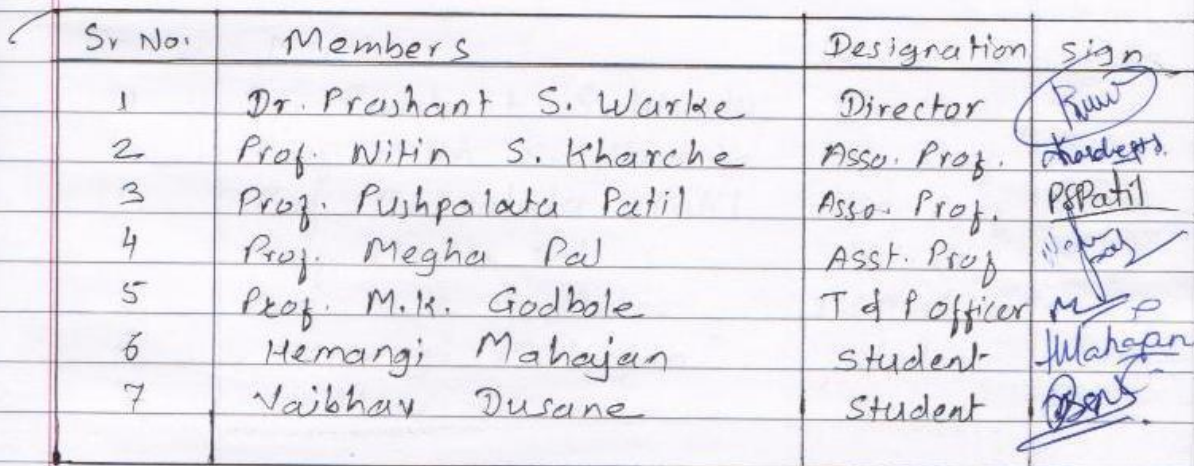 Sr No. Members Designation Sign
1 Dr. Prashant S. Warke Director
2 Prof. Nitin S. Kharche Asso. Prof.
3 Prof. Pushpalata Patil Asso. Prof. PSPatil
4 Prof. Megha Pal Asst. Prof
5 Prof. M.K. Godbole T & P officer
6 Hemangi Mahajan Student HMahajan
7 Vaibhav Dusane Student